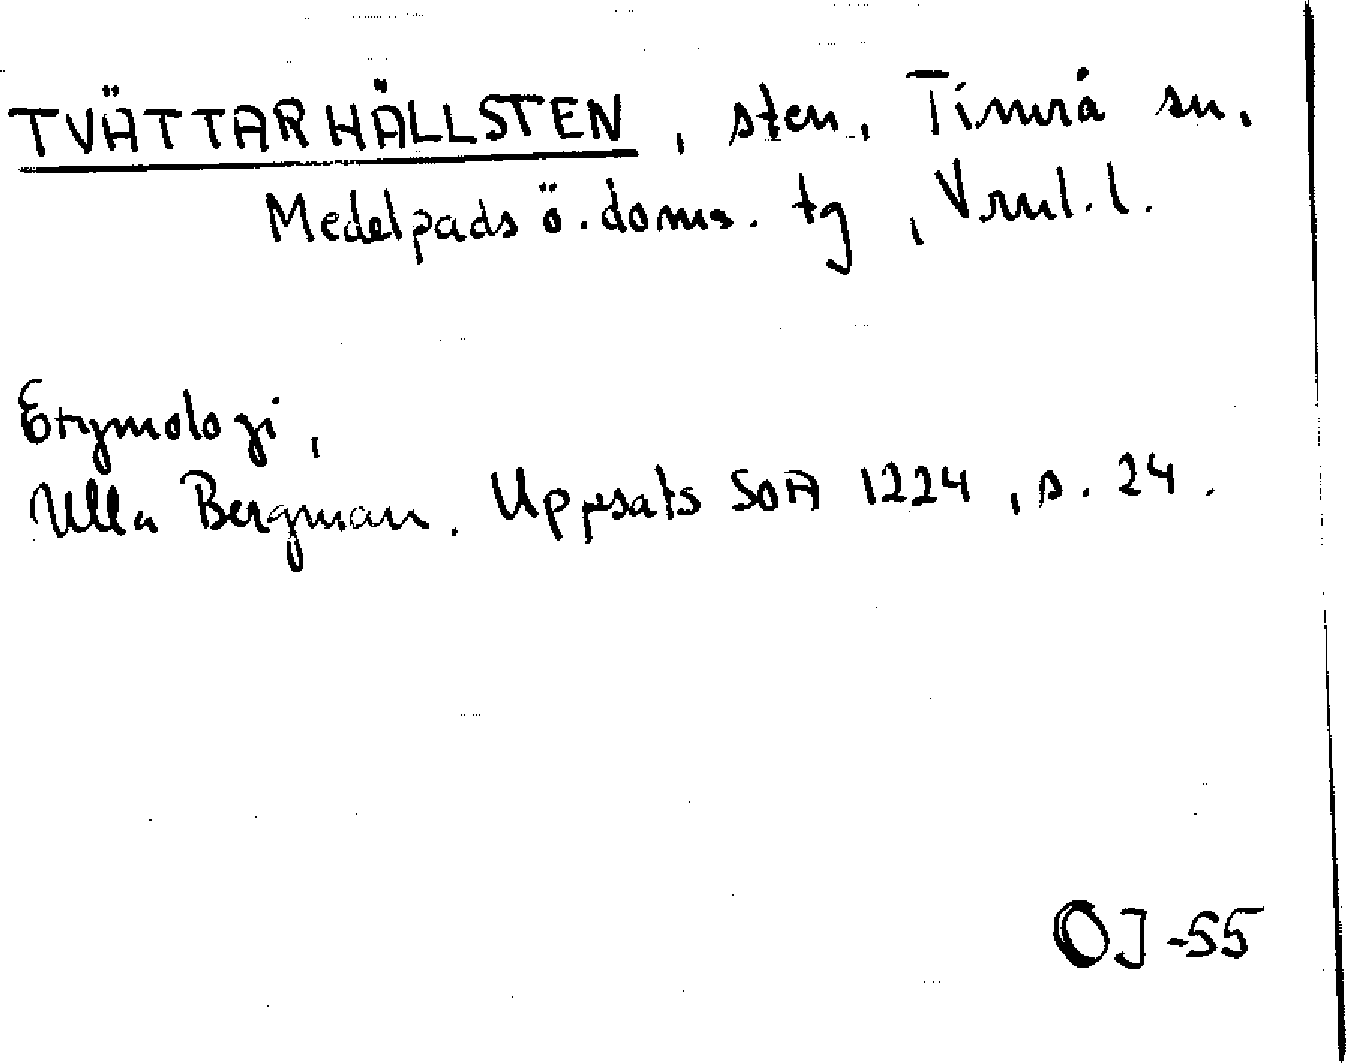 TVÄTTARHÄLLSTEN, sten, Timrå sn,
Medelpads ö. doms. tg, Vrnl. l.
Etymologi,
Ulla Bergman. Uppsats SOA 1224, s. 24.
OJ-55